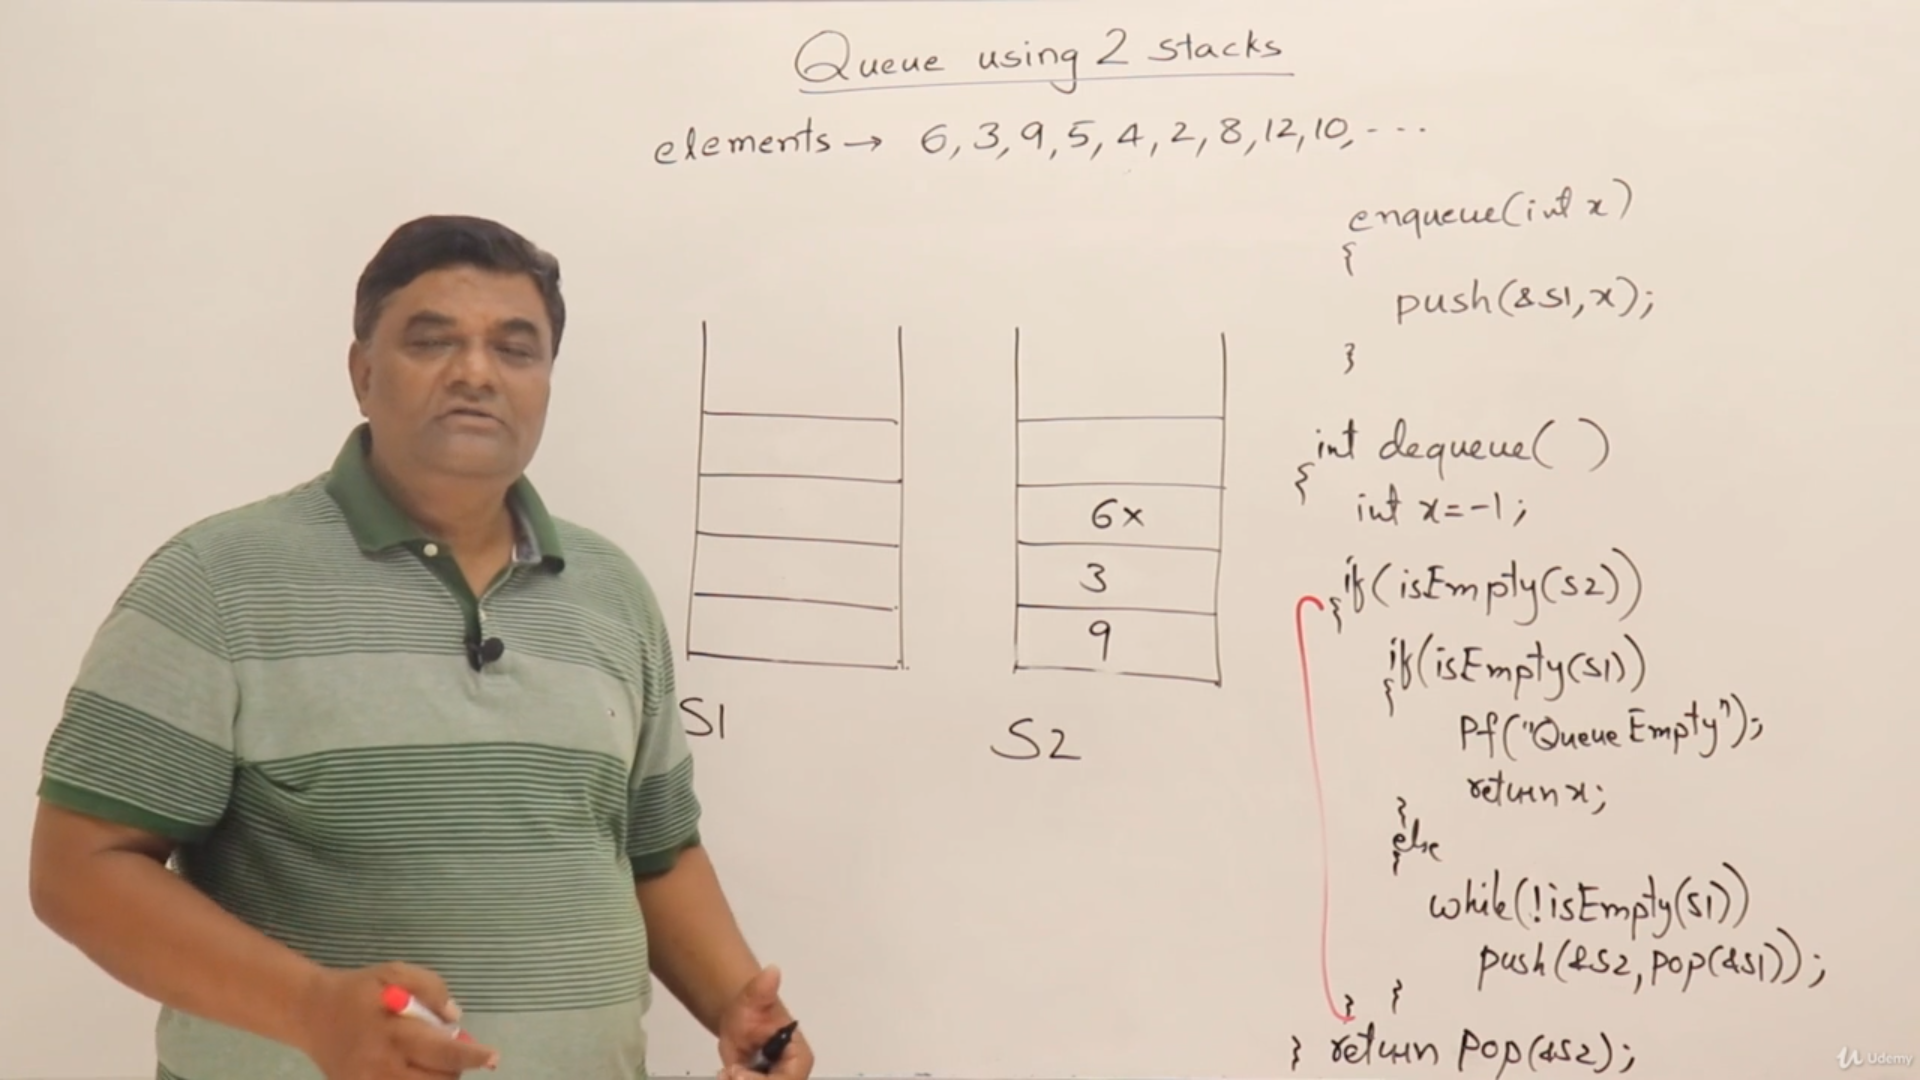 Queue using 2 stacks
elements → 6, 3, 9, 5, 4, 2, 8, 12, 10, ...
enqueue(int x)
{
push(&S1, x);
}
int dequeue( )
{
int x = -1;
if(isEmpty(S2))
{
if(isEmpty(S1))
{
Pf("Queue Empty");
return x;
}
else
{
while(!isEmpty(S1))
push(&S2, pop(&S1));
} }
} return pop(&S2);
6x
3
9
S1
S2
Udemy